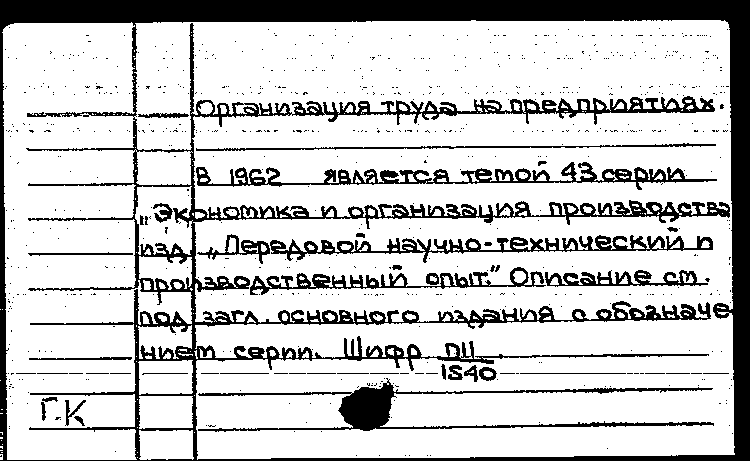 Организация труда на предприятиях.
В 1962 является темой 43 серии
„Экономика и организация производства
изд. „Передовой научно-технический и
производственный опыт." Описание см.
под загл. основного издания с обозначе-
нием серии. Шифр П11/1840.
Г.К